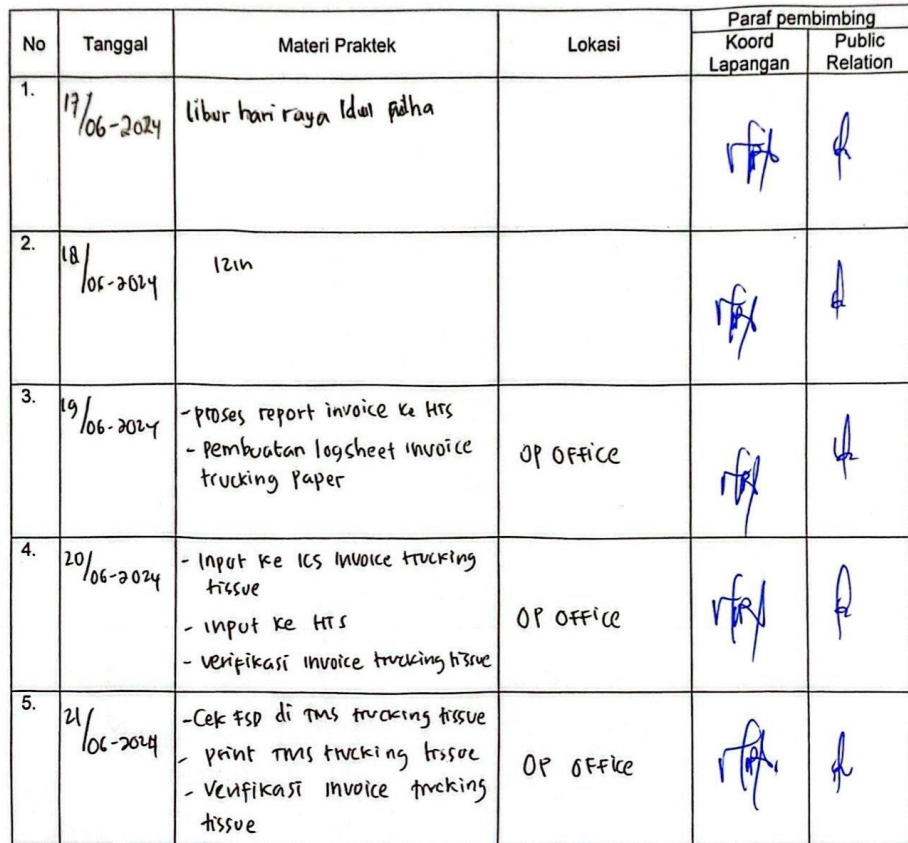 No Tanggal Materi Praktek Lokasi Paraf pembimbing
Koord Lapangan Public Relation
1. 17/06-2024 libur hari raya Idul Adha
2. 18/06-2024 Izin
3. 19/06-2024 - proses report invoice ke HTS
- Pembuatan logsheet invoice
trucking Paper
OP OFFice
4. 20/06-2024 - Input ke ICS Invoice trucking
tissue
- input ke HTS
- verifikasi invoice trucking tissue
OP OFFice
5. 21/06-2024 - Cek FSP di TMS trucking tissue
- print TMS trucking tissue
- Verifikasi invoice trucking
tissue
OP OFFice